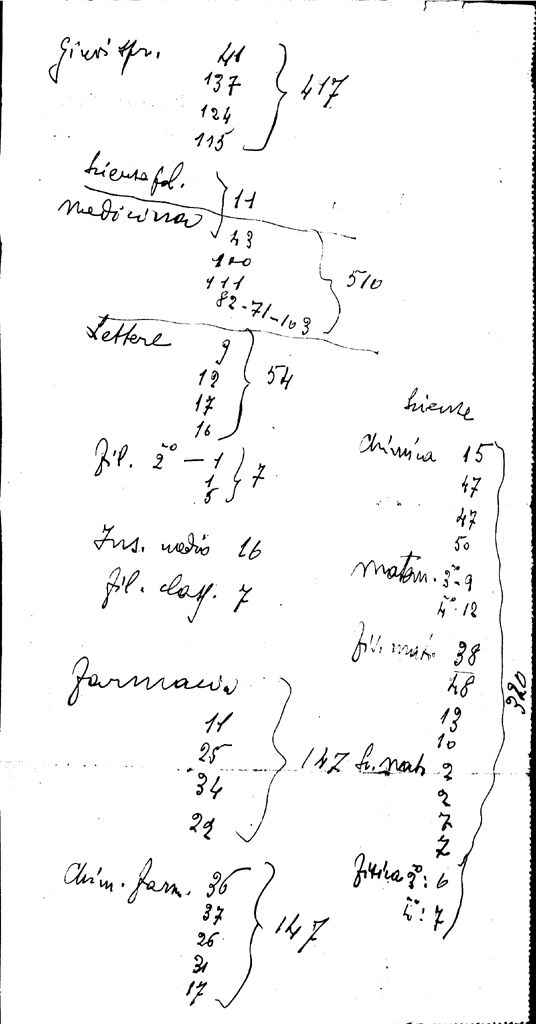 Giurispr. 41
137
124
115
} 417
Scienze pol. } 11
Medicina
43
100
111
82-71-103
} 510
Lettere
9
12
17
16
} 54
fil. 2º - 1
1
5
} 7
Ins. medio 16
fil. class. 7
Farmacia
11
25
34
22
} 147
Chim. farm. 36
37
26
31
17
} 147
Scienze
Chimica 15
47
47
50
Matem. 3º-9
4º-12
fis. mat. 38
28
13
10
Sc. nat. 2
2
7
7
fisica 3º: 6
4º: 7
320